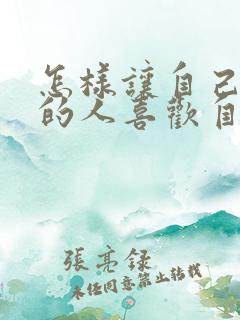 怎樣讓自己
的人喜歡自
張亮録
未经同意禁止转载